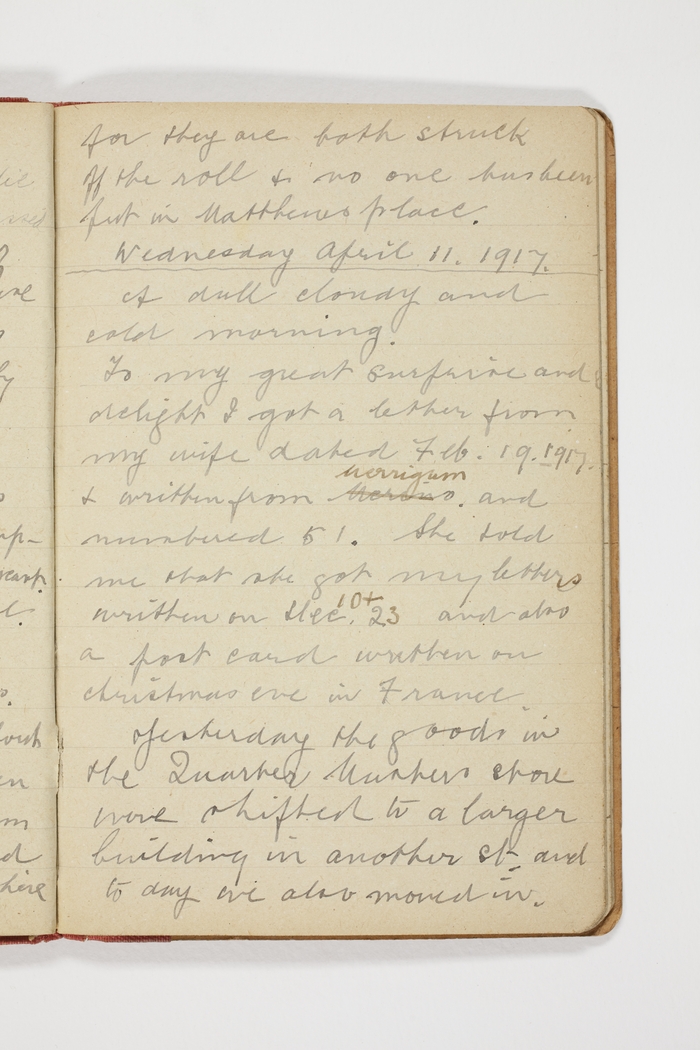 for they are both struck
off the roll & no one has been
put in Matthews place.
Wednesday April 11. 1917.
A dull cloudy and
cold morning.
To my great surprise and
delight I got a letter from
my wife dated Feb. 19. 1917.
Merrigum
& written from and
numbered 51. She told
me that she got my letters
10+
written on Dec. 23 and also
a post card written on
christmas eve in France
Yesterday the goods in
the Quarter Masters store
were shifted to a larger
building in another st and
to day we also moved in.